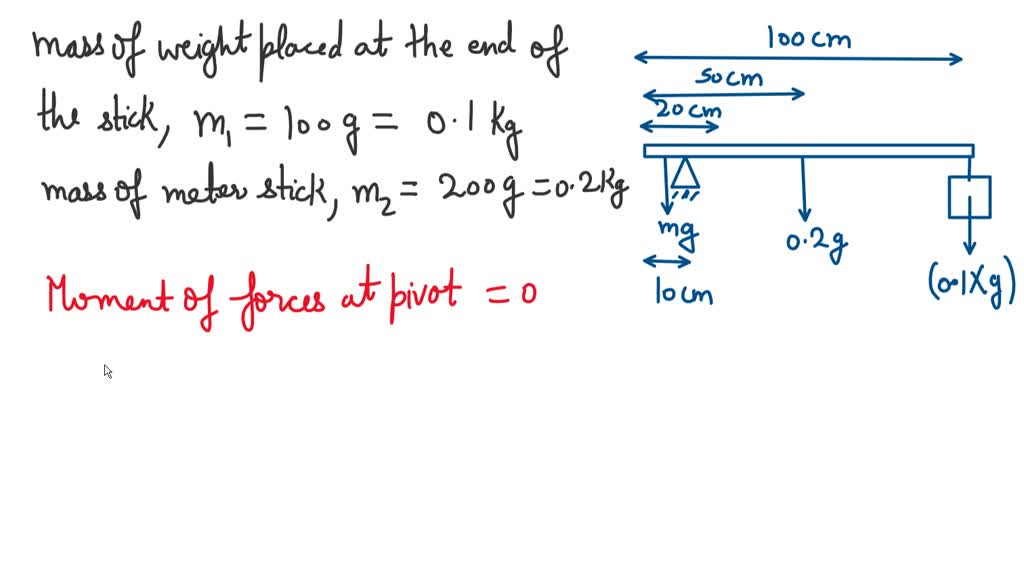 mass of weight placed at the end of
the stick, m₁ = 100 g = 0.1 Kg
mass of meter stick, m₂ = 200 g = 0.2 Kg
Moment of forces at pivot = 0
100 cm
50 cm
20 cm
mg
0.2g
(0.1Xg)
10 cm